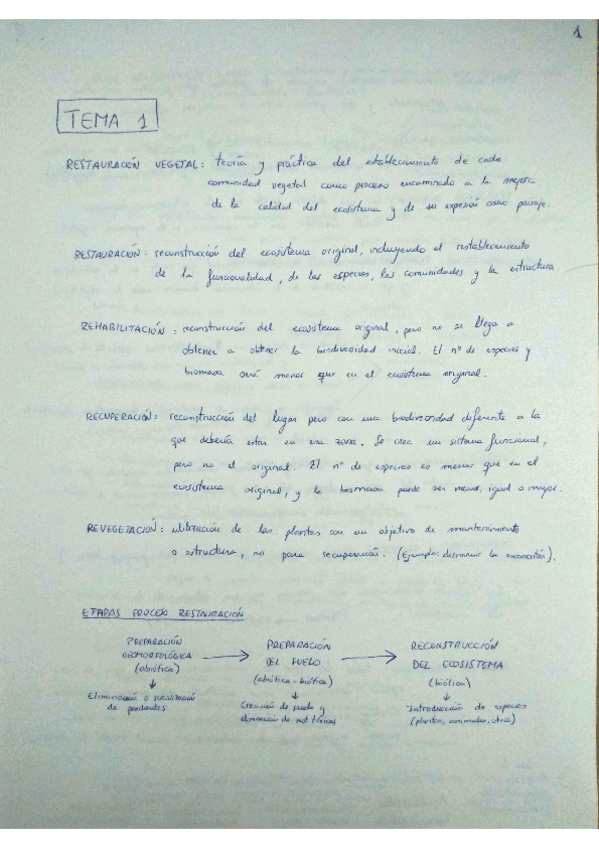 1
TEMA 1
RESTAURACIÓN VEGETAL: teoría y práctica del establecimiento de cada
comunidad vegetal como proceso encaminado a la mejora
de la calidad del ecosistema y de su expresión como paisaje.
RESTAURACIÓN: reconstrucción del ecosistema original, incluyendo el restablecimiento
de la funcionalidad, de las especies, las comunidades y la estructura.
REHABILITACIÓN: reconstrucción del ecosistema original, pero no se llega a
obtener a obtener la biodiversidad inicial. El nº de especies y
biomasa será menor que en el ecosistema original.
RECUPERACIÓN: reconstrucción del lugar pero con una biodiversidad diferente a la
que debería estar en esa zona. Se crea un sistema funcional,
pero no el original. El nº de especies es menor que en el
ecosistema original, y la biomasa puede ser menor, igual o mayor.
REVEGETACIÓN: utilización de las plantas con un objetivo de mantenimiento
o estructura, no para recuperación. (Ejemplo: disminuir la escorrentía).
ETAPAS PROCESO RESTAURACIÓN
PREPARACIÓN GEOMORFOLÓGICA (abiótica) → PREPARACIÓN DEL SUELO (abiótica-biótica) → RECONSTRUCCIÓN DEL ECOSISTEMA (biótica)
↓ ↓ ↓
Eliminación o suavización de pendientes
Creación de suelo y eliminación de sust. tóxicas
Introducción de especies (plantas, animales, otros)